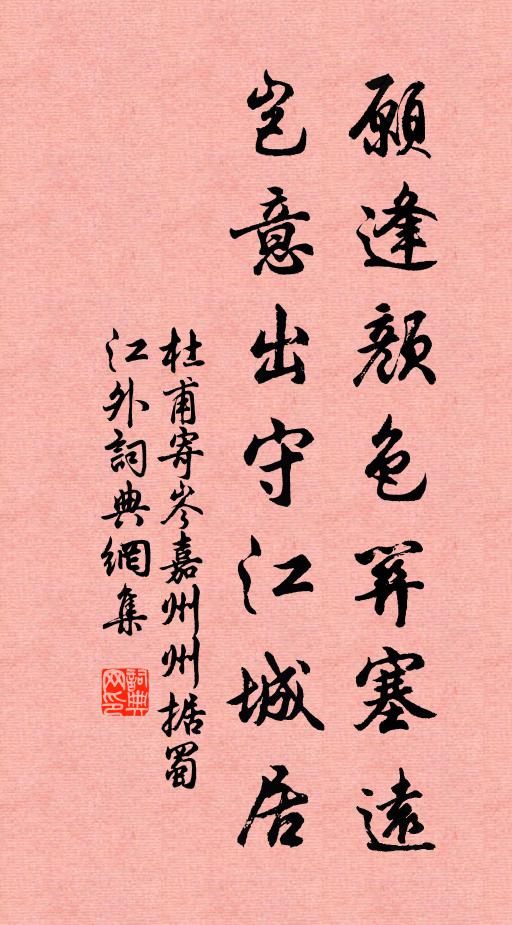 願逢顔色關塞遠
豈意出守江城居
杜甫寄岑嘉州州据蜀
江外詞典網集
詞典
网印